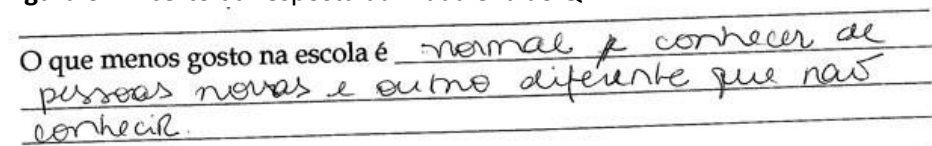 O que menos gosto na escola é normal p conhecer de
pessoas novas e outro diferente que naõ
conhecir.